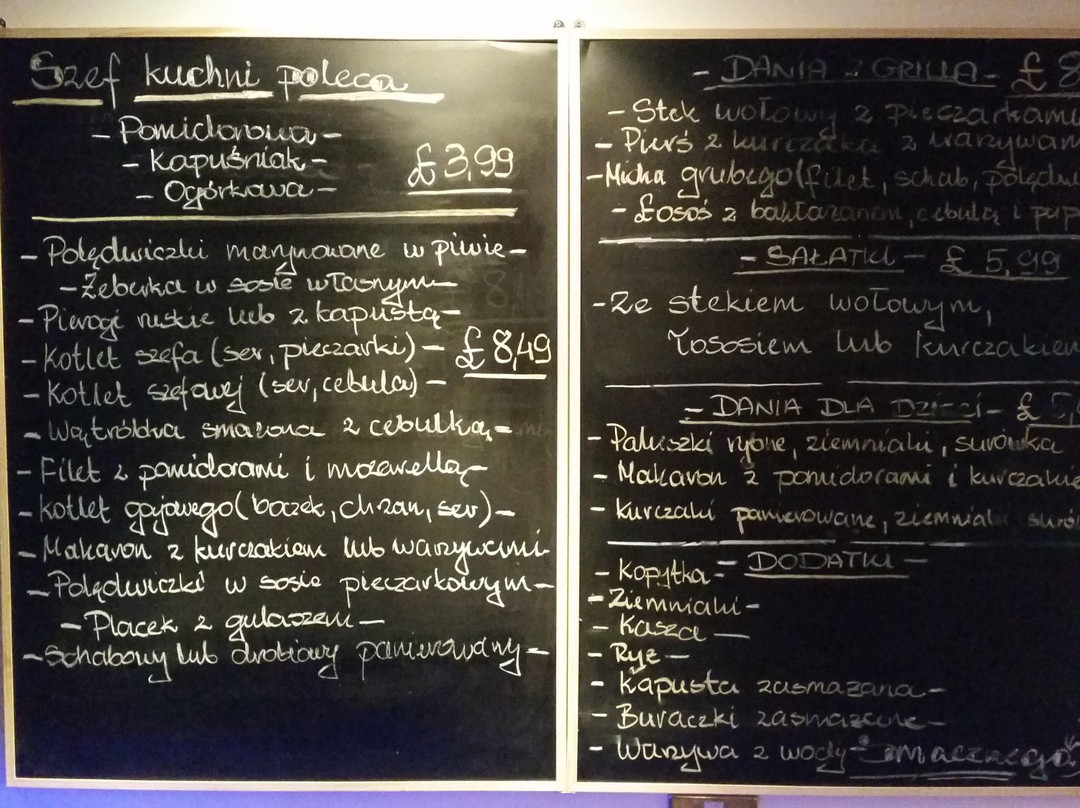 Szef kuchni poleca
- Pomidorowa -
- Kapuśniak -
£ 3,99
- Ogórkowa -
- Polędwiczki marynowane w piwie -
- Żeberka w sosie własnym -
- Pierogi ruskie lub z kapustą -
- Kotlet szefa (ser, pieczarki) - £ 8,49
- Kotlet szefowej (ser, cebula) -
- Wątróbka smażona z cebulką -
- Filet z pomidorami i mozarellą -
- Kotlet gajowego (boczek, chrzan, ser) -
- Makaron z kurczakiem lub warzywami -
- Polędwiczki w sosie pieczarkowym -
- Placek z gulaszem -
- Schabowy lub drobiowy panierowany -
- DANIA Z GRILLA - £ 8
- Stek wołowy z pieczarkami
- Pierś z kurczaka z warzywam
- Micha grubego (filet, schab, polędw
- Łosoś z bakłażanem, cebulą i pap
- SAŁATKI - £ 5,99
- Ze stekiem wołowym,
łososiem lub kurczakiem
- DANIA DLA DZIECI - £
- Paluszki rybne, ziemniaki, surówka
- Makaron z pomidorami i kurczakie
- Kurczaki panierowane, ziemniaki surów
- DODATKI -
- Kopytka -
- Ziemniaki -
- Kasza -
- Ryż -
- Kapusta zasmażana -
- Buraczki zasmażane -
- Warzywa z wody - Smacznego